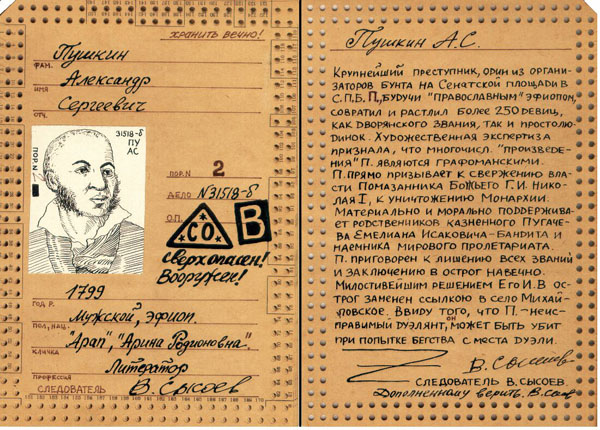 ХРАНИТЬ ВЕЧНО!
Пушкин
ФАМ.
Александр
ИМЯ
Сергеевич
ОТЧ.
31518-б
ПУ
АС
ПОР.N
ПОР.N 2
ДЕЛО N31518-б
О.П. СО В
Сверхопасен!
Вооружен!
1799
ГОД Р.
Мужской, эфиоп.
ПОЛ, НАЦ.
"Арап", "Арина Родионовна".
КЛИЧКА
Литератор
ПРОФЕССИЯ
СЛЕДОВАТЕЛЬ В. Сысоев
Пушкин А.С.
Крупнейший преступник, один из органи-
заторов бунта на Сенатской площади в
С.П.Б. П, будучи "православным" эфиопом,
совратил и растлил более 250 девиц,
как дворянского звания, так и простолю-
динок. Художественная экспертиза
признала, что многочисл. "произведе-
ния" П. являются графоманскими.
П. прямо призывает к свержению вла-
сти Помазанника Божьего Г.И. Нико-
лая I, к уничтожению Монархии.
Материально и морально поддержива-
ет родственников казненного Пугаче-
ва Емелиана Исаковича - бандита и
наемника мирового пролетариата.
П. приговорен к лишению всех званий
и заключению в острог навечно.
Милостивейшим решением Его И.В. о-
строг заменен ссылкою в село Михай-
ловское. Ввиду того, что П. - неис-
правимый дуэлянт, он может быть убит
при попытке бегства с места дуэли.
В. Сысоев
СЛЕДОВАТЕЛЬ В. СЫСОЕВ.
Дополненному верить. В. Сысоев